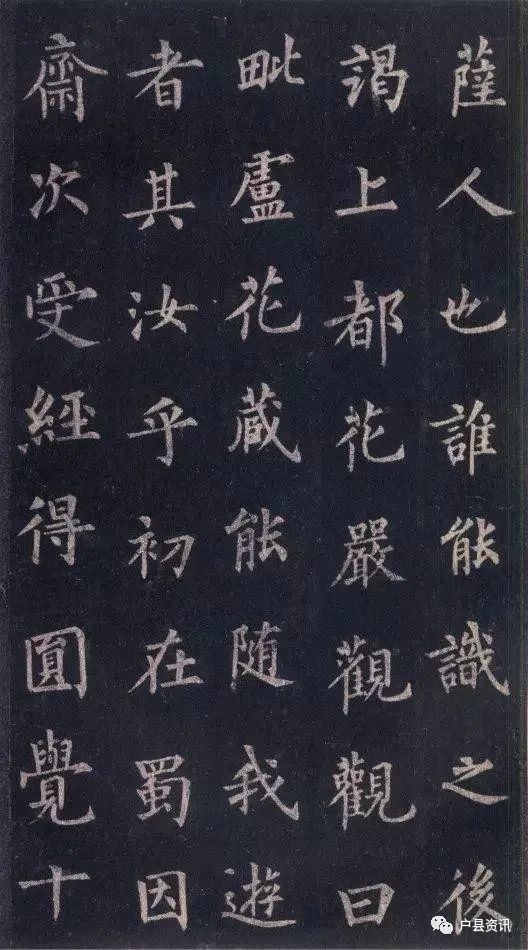 薩人也誰能識之後
謁上都花嚴觀觀曰
毗盧花蔵能随我遊
者其汝乎初在蜀因
齋次受經得圎覺十
户县资讯